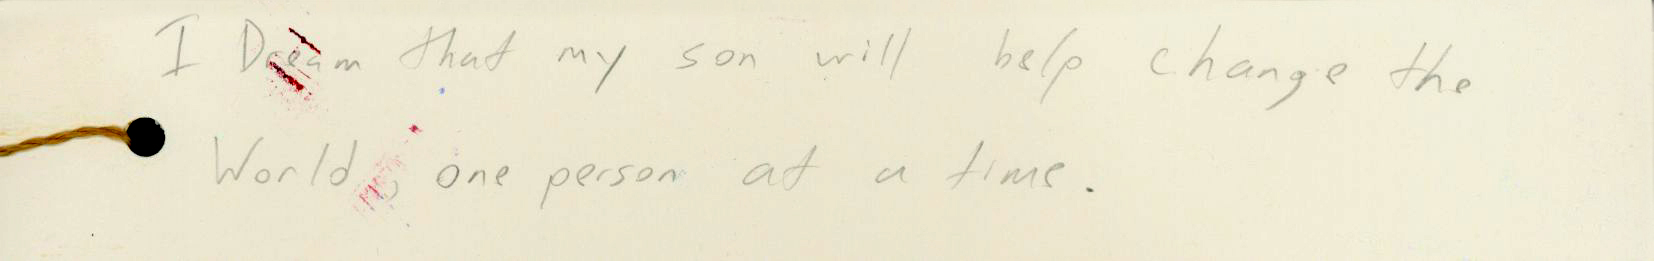 I Dream that my son will help change the
World, one person at a time.